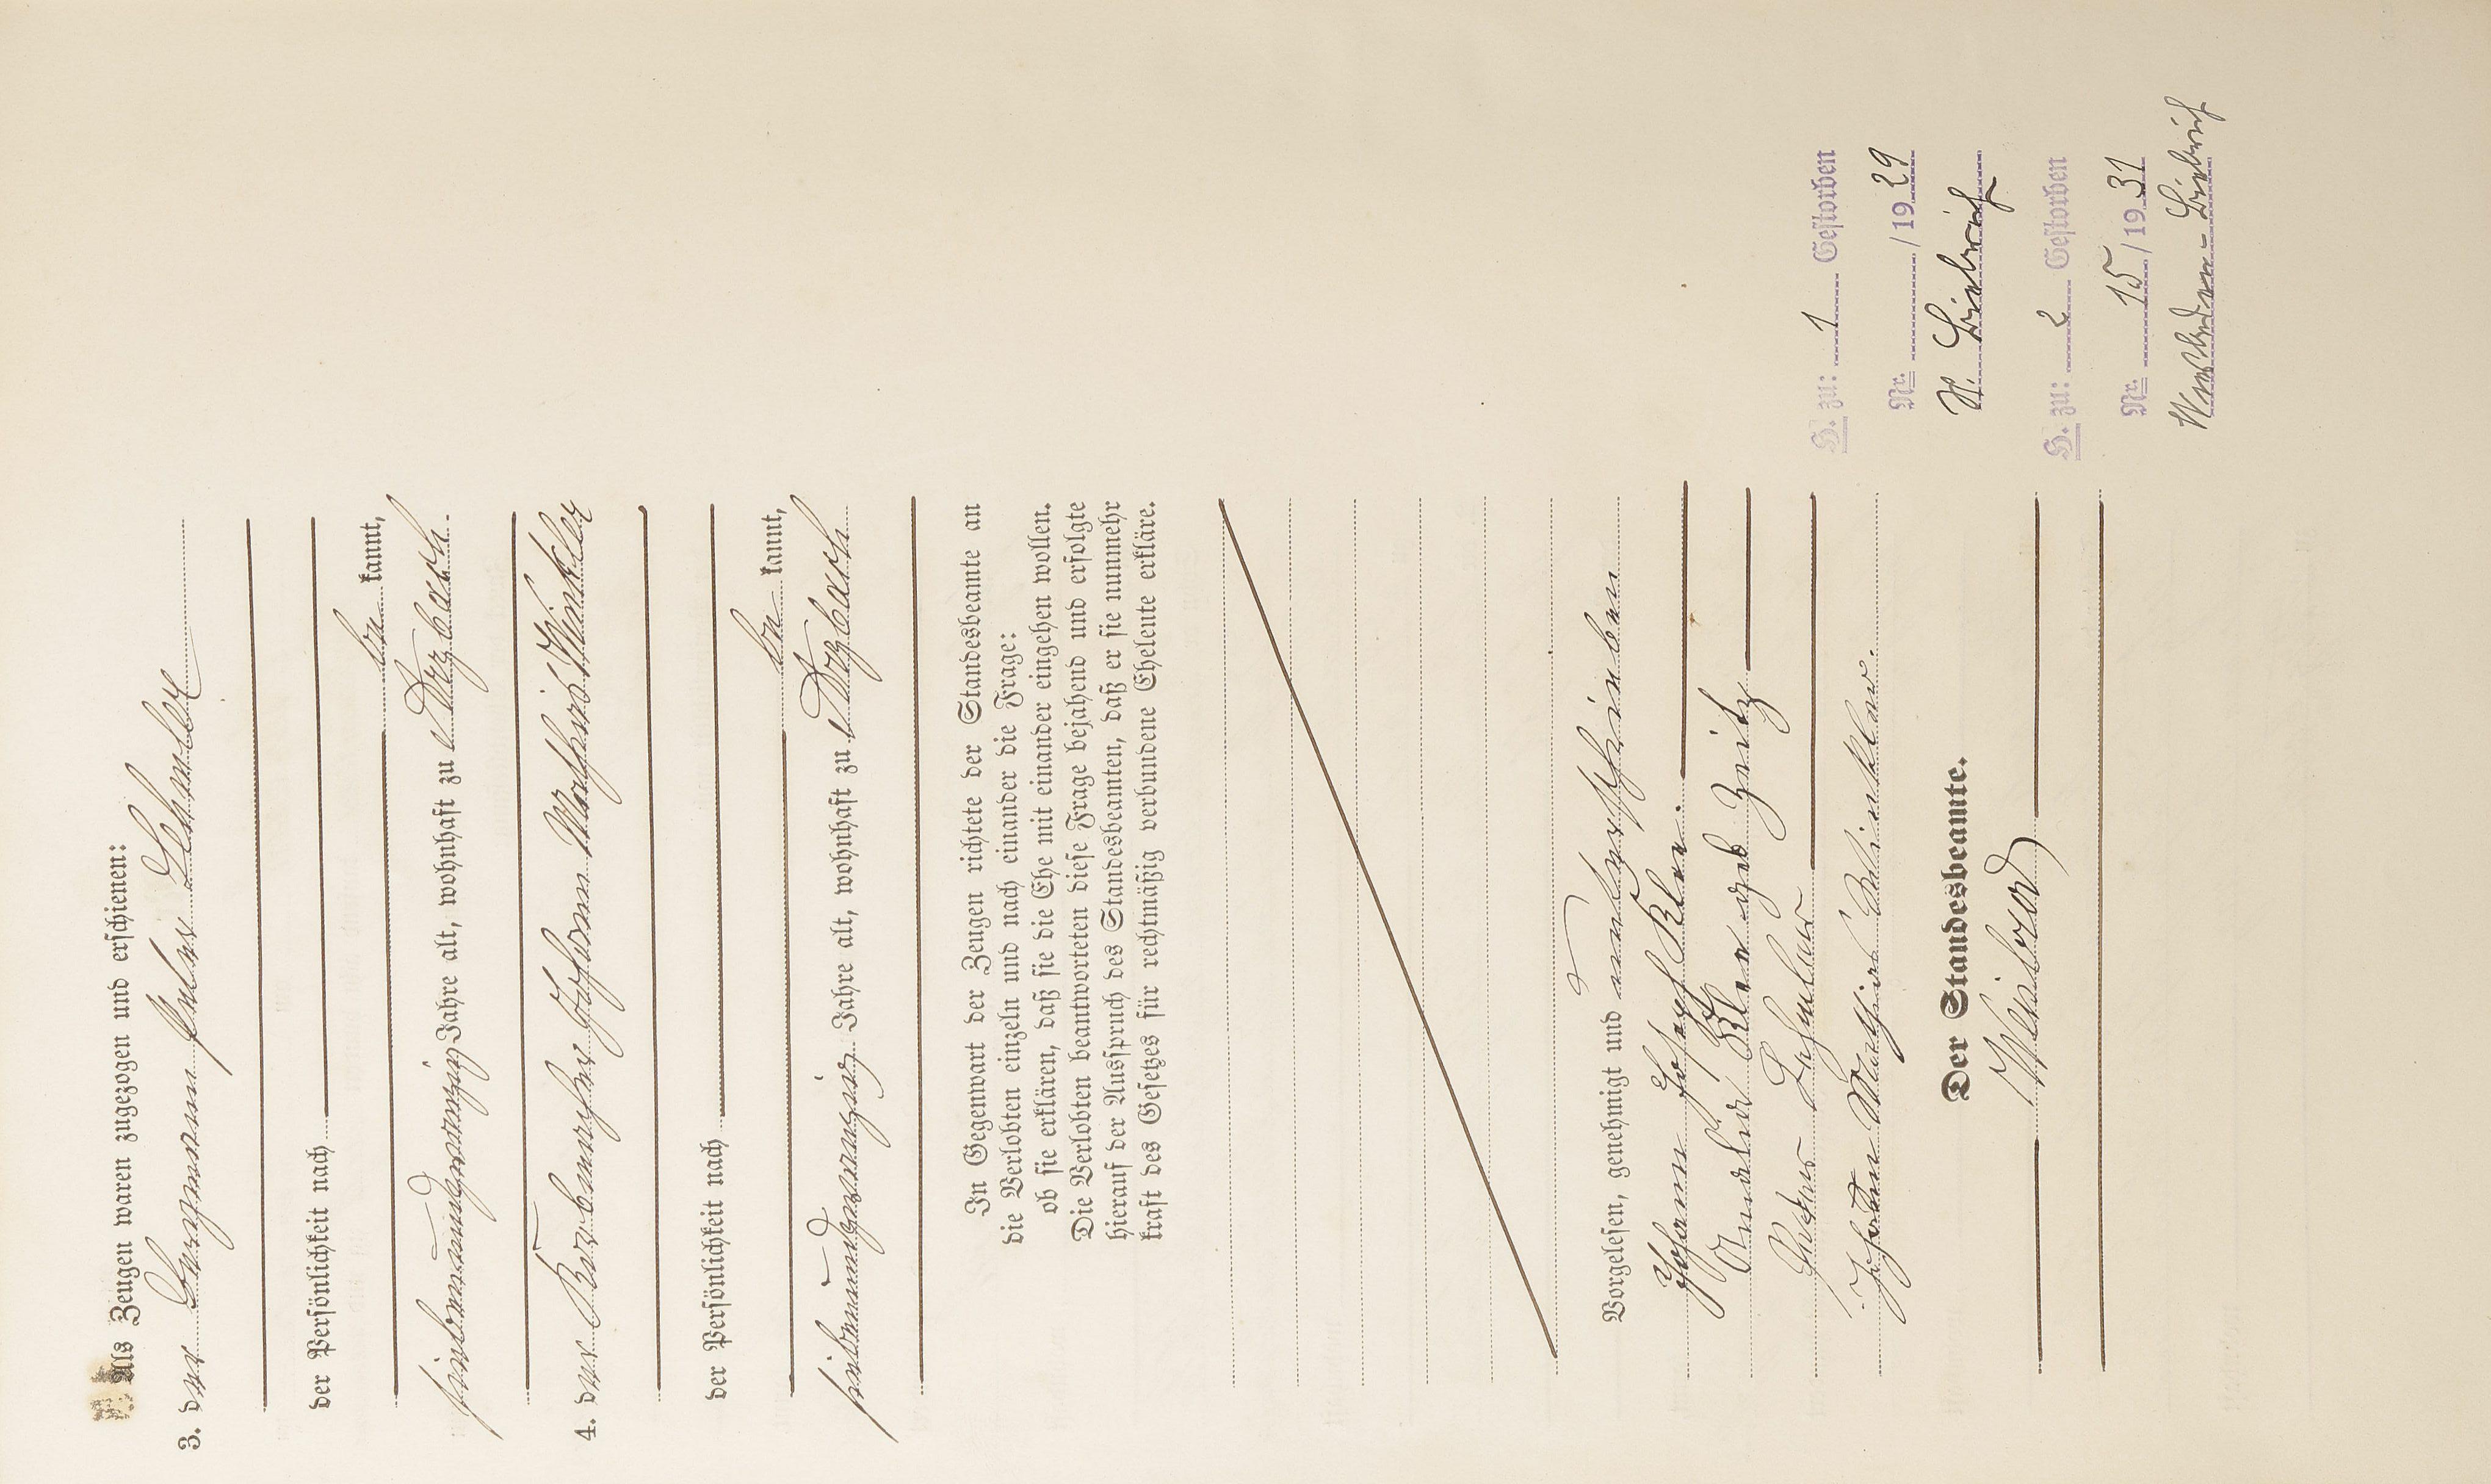 Als Zeugen waren zugezogen und erschienen:
3. der Bergmann Peter Lehmler
der Persönlichkeit nach
be kannt,
siebenundzwanzig Jahre alt, wohnhaft zu Arzbach.
4. der Korbmacher Johann Mathias Winkler
der Persönlichkeit nach
be kannt,
siebenundzwanzig Jahre alt, wohnhaft zu Arzbach
In Gegenwart der Zeugen richtete der Standesbeamte an
die Verlobten einzeln und nach einander die Frage:
ob sie erklären, daß sie die Ehe mit einander eingehen wollen.
Die Verlobten beantworteten diese Frage bejahend und erfolgte
hierauf der Ausspruch des Standesbeamten, daß er sie nunmehr
kraft des Gesetzes für rechtmäßig verbundene Eheleute erkläre.
Vorgelesen, genehmigt und unterschrieben
Johann Josef Klee.
Klee geb Zeitz
Peter Lehmler
Johann Mathias Winkler.
Der Standesbeamte.
Weisbrod
H. zu: 1 Gestorben
Nr. /1929
St. Biebrich
H. zu: 2 Gestorben
Nr. 15/1931
Wiesbaden-Biebrich